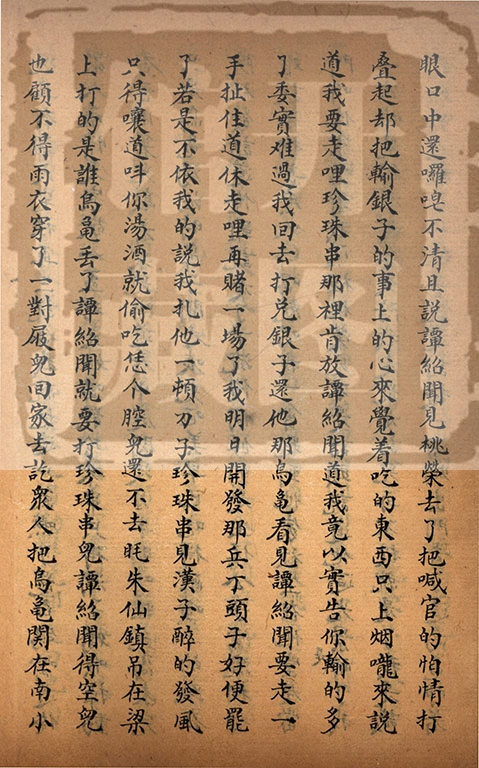 眼口中還囉唣不清且説譚紹聞見桃榮去了把喊官的怕情打
叠起却把輸銀子的事上的心來覺着吃的東西只上烟嚨來説
道我要走哩珍珠串那裡肯放譚紹聞道我竟以實告你輸的多
了委實难過我回去打兑銀子還他那烏龜看見譚紹聞要走一
手扯住道休走哩再賭一場了我明日開發那兵丁頭子好便罷
了若是不依我的説我扎他一頓刀子珍珠串見漢子醉的發風
只得嚷道呌你湯酒就偷吃恁个腔兒還不去眊朱仙鎮吊在梁
上打的是誰烏龜丢了譚紹聞就要打珍珠串兒譚紹聞得空兒
也顧不得雨衣穿了一對屐兒回家去訖衆人把烏龜関在南小